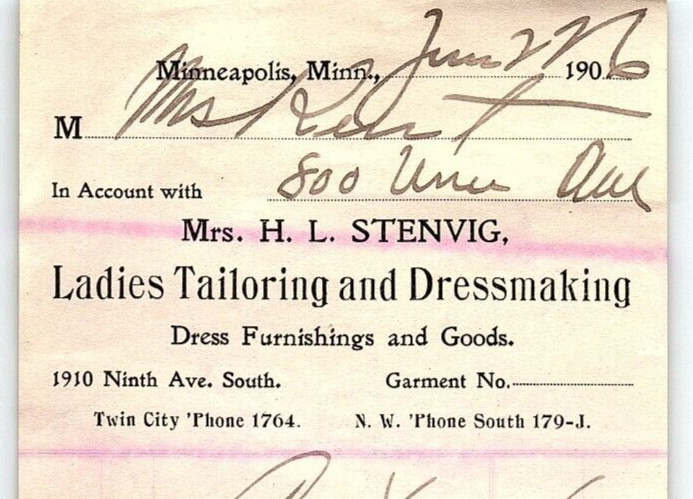 Minneapolis, Minn., June 27 1906
M Mrs Kent
In Account with 800 Ave
Mrs. H. L. STENVIG,
Ladies Tailoring and Dressmaking
Dress Furnishings and Goods.
1910 Ninth Ave. South. Garment No.
Twin City 'Phone 1764. N. W. 'Phone South 179-J.